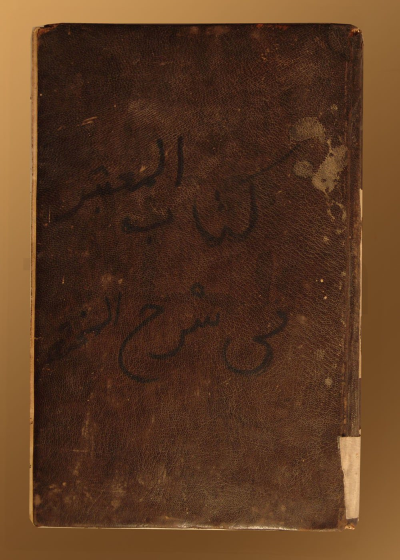 كتاب المعتبر
في شرح